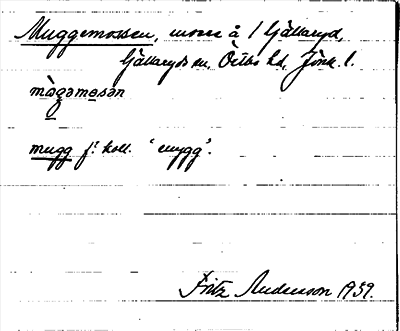 Muggemossen, mosse å 1 Gällaryd,
Gällaryds sn, Östbo hd, Jönk. l.
màgamosan
mugg f. koll. 'mygg'.
Fritz Anderson 1939.